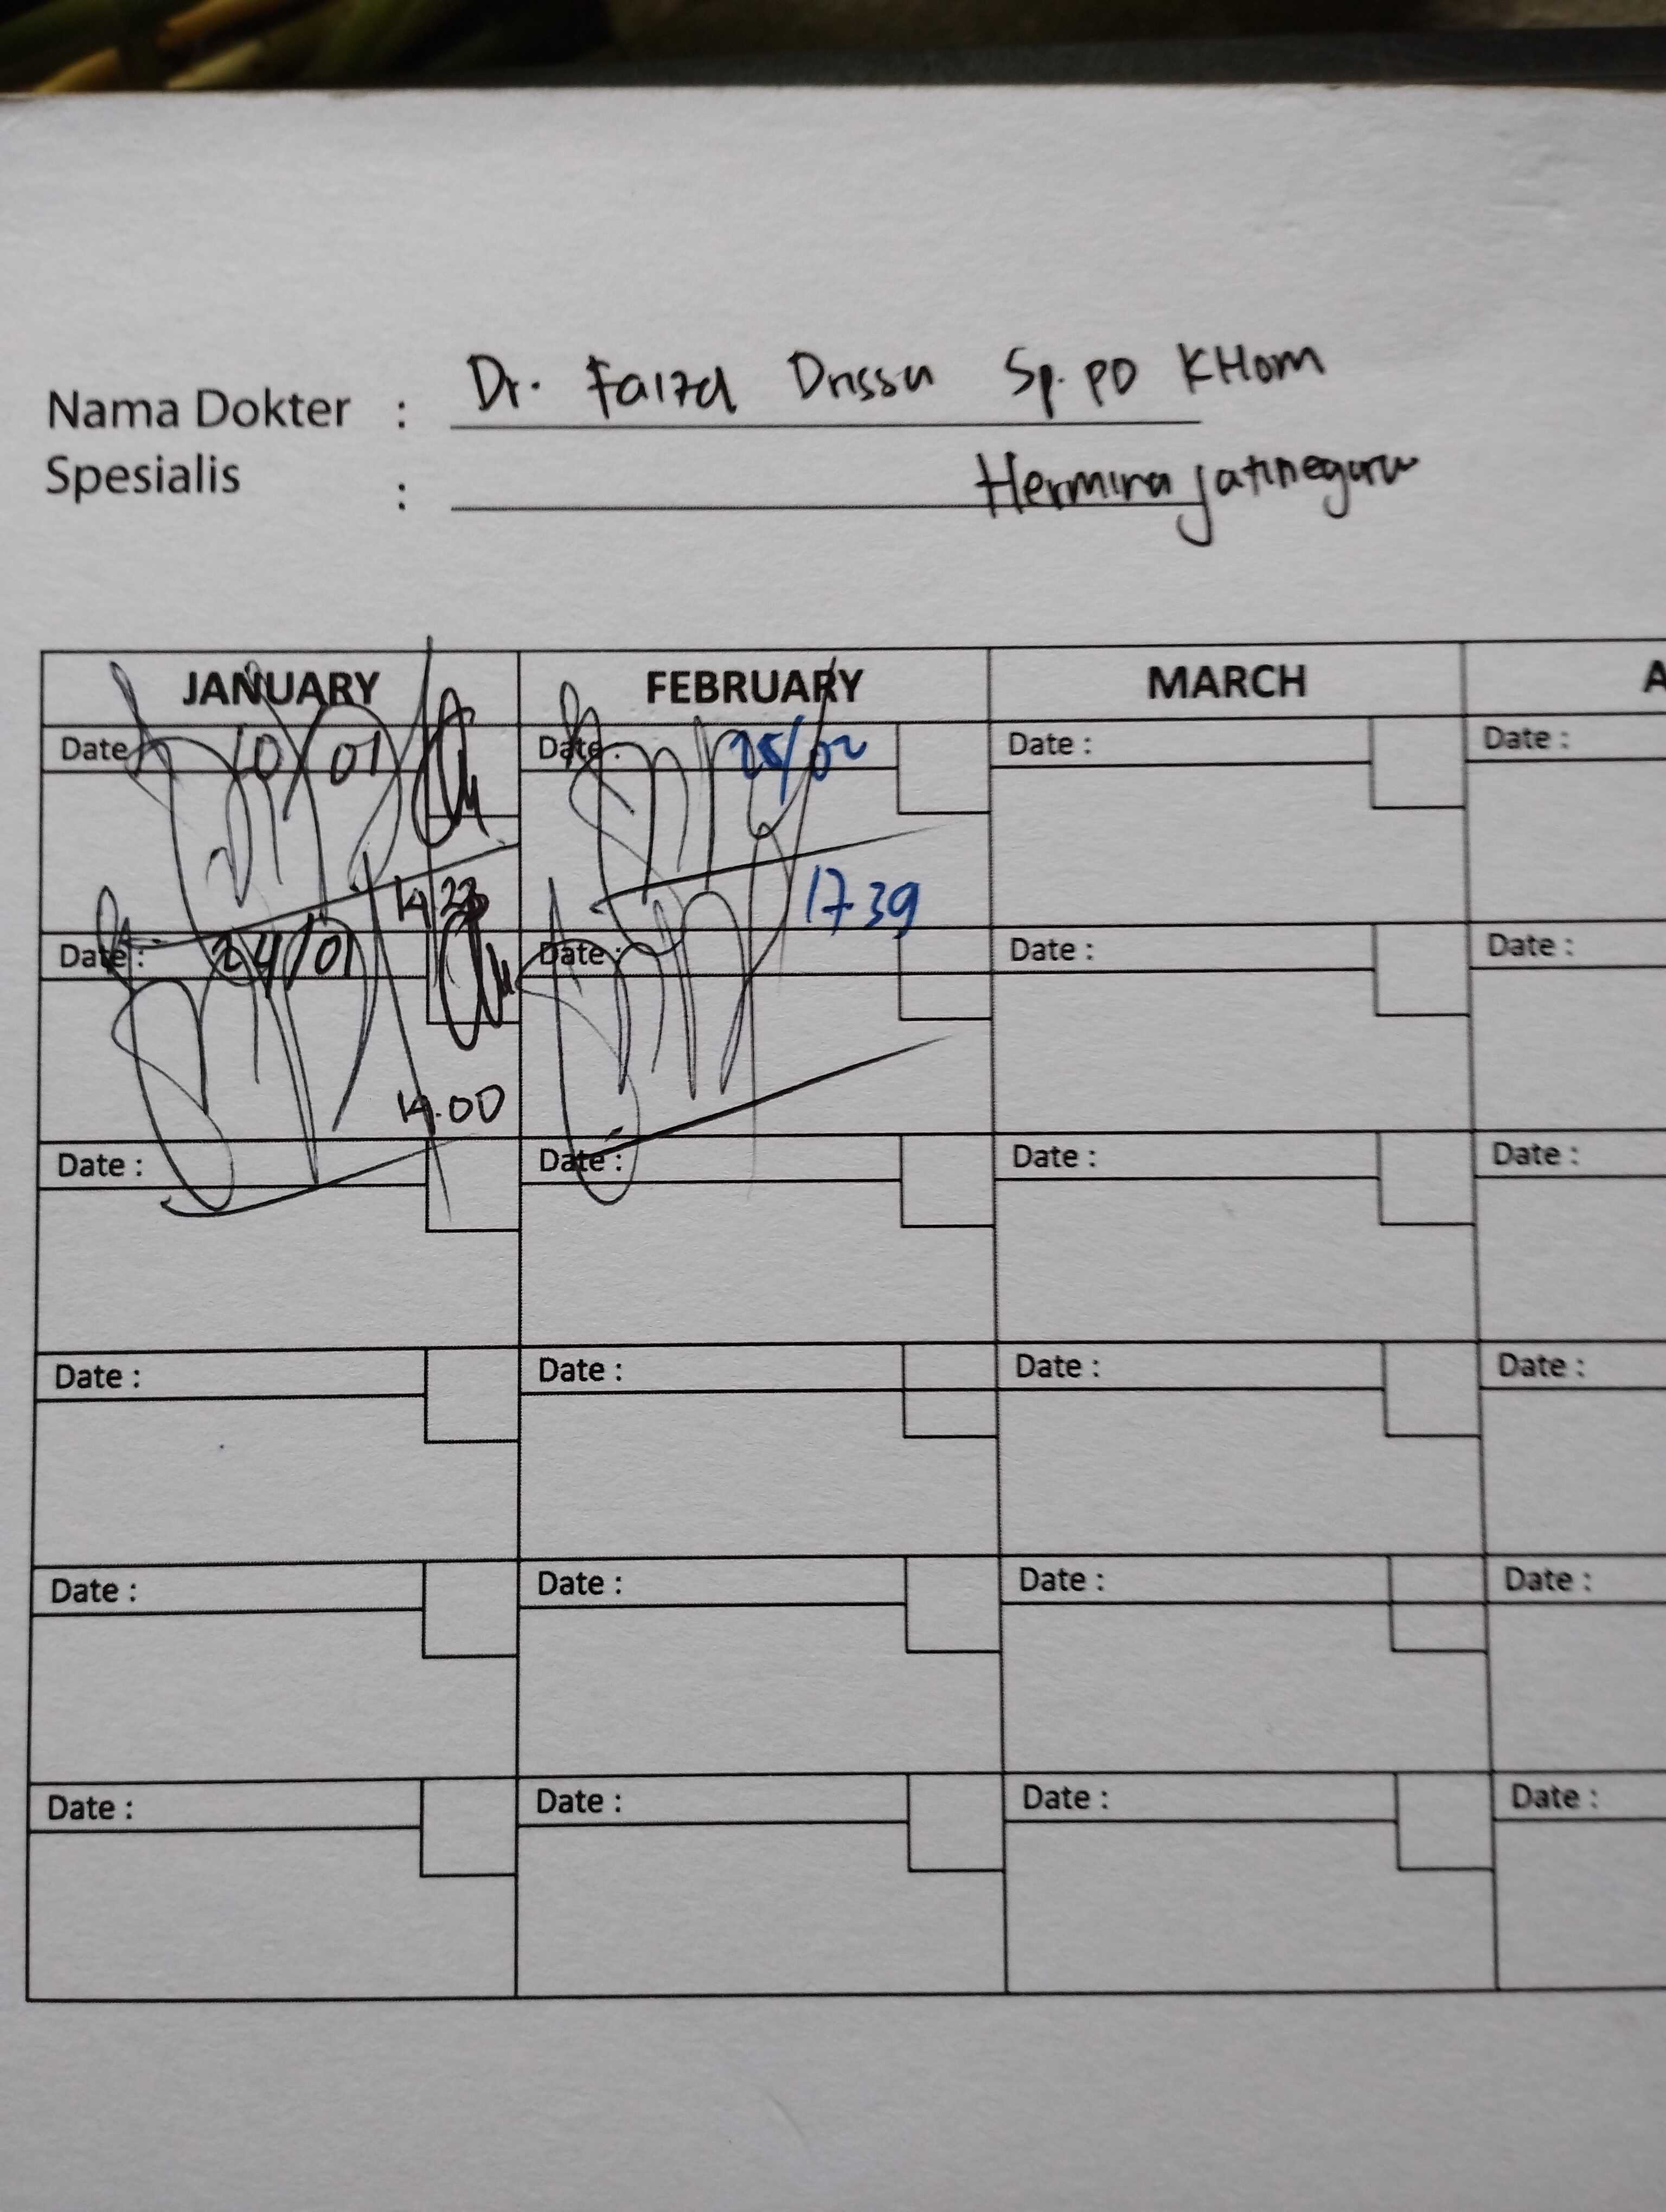 Nama Dokter : Dr. Faizal Drissa Sp.PD KHOM
Spesialis : Hermina Jatinegara
JANUARY FEBRUARY MARCH A
Date 10/01 Date : 25/02 Date : Date :
14.23 17.39
Date : 24/01 Date : Date : Date :
14.00
Date : Date : Date : Date :
Date : Date : Date : Date :
Date : Date : Date : Date :
Date : Date : Date : Date :